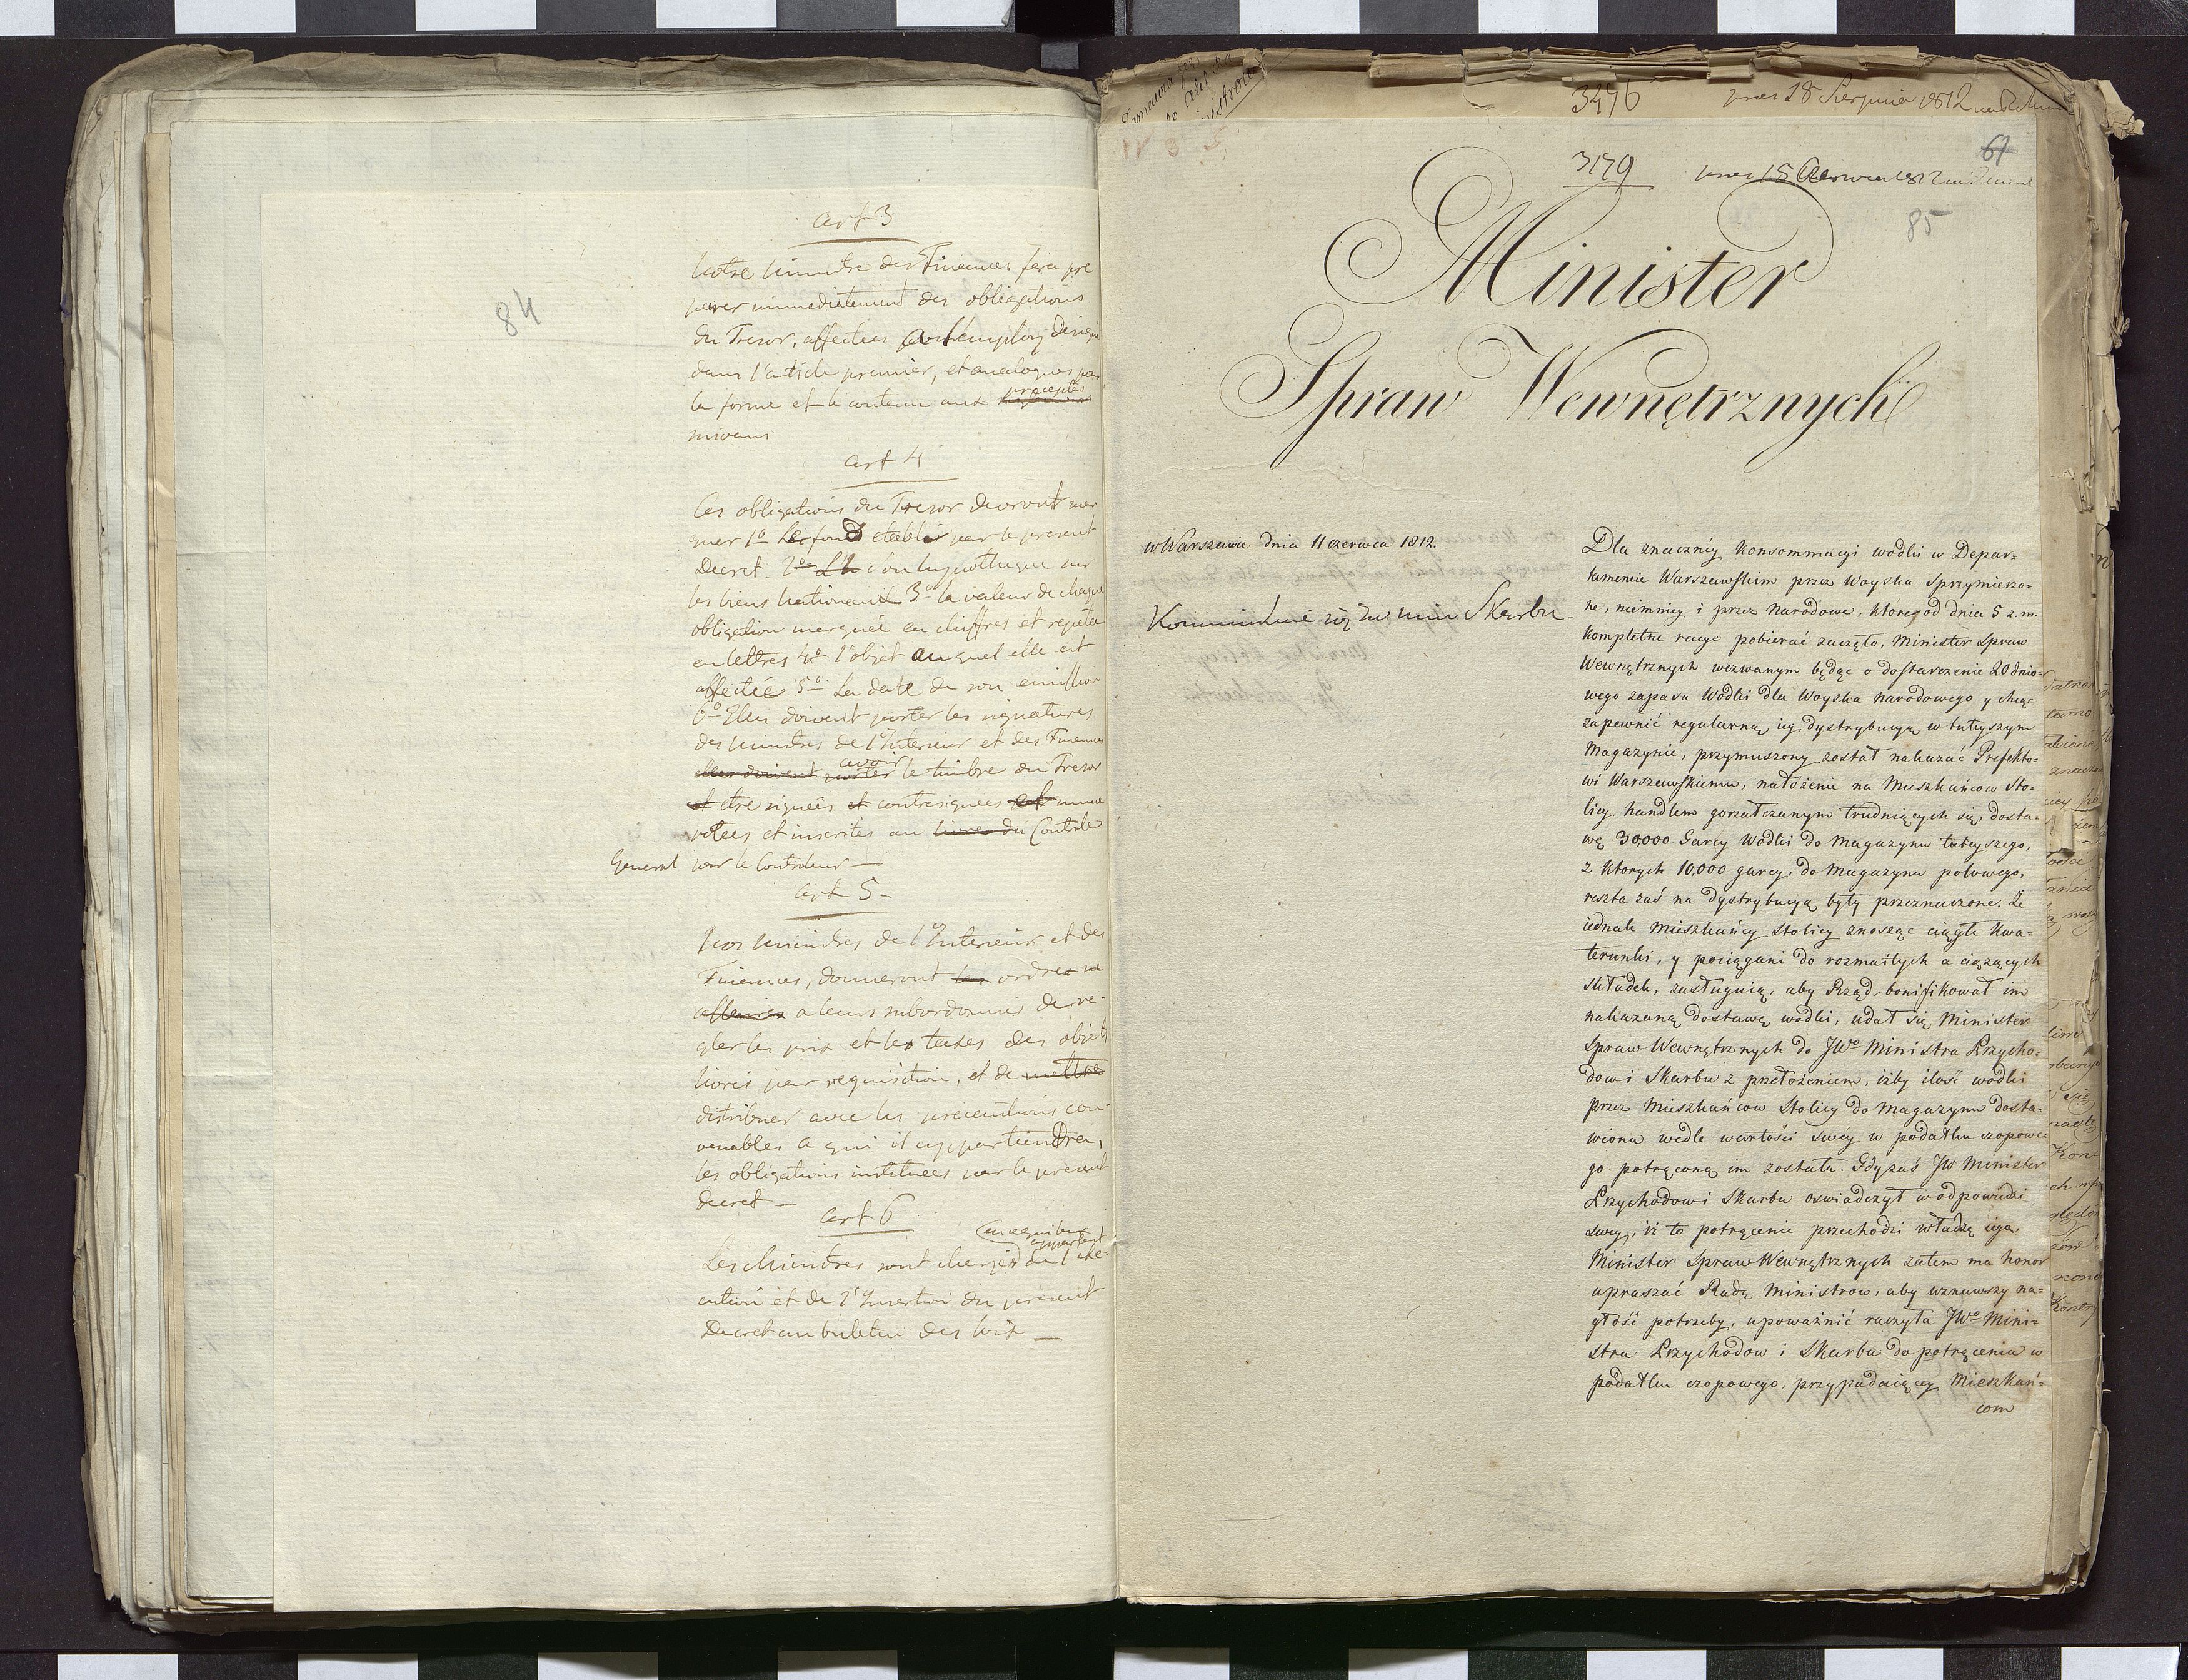 84
art 3
Notre Ministre des Finances fera pre
parer immediatement des obligations
du Tresor, affectées a l'employ designé
dans l'article premier, et analogues par
la forme et le contenu aux preceptes
suivans
art 4
Ces obligations du Tresor devront mar
quer 1º Le fond etabli par le present
Decret 2º son hypotheque sur
les biens Nationaux 3º la valeur de chaque
obligation marquée en chiffres et repetée
en lettres 4º l'objet auquel elle est
affectée 5º La date de son emission
6º Elles doivent porter les signatures
des Ministres de l'Interieur et des Finances
elles doivent porter avoir le timbre du Tresor
et etre signeés et contresignées et nume
rotées et inscrites au livre du Controle
General par le Controleur —
art 5 -
Nos Ministres de l'Interieur et des
Finances, donneront les ordres
a leurs subordonnés de re-
gler les prix et les taxes des objets
livrés par requisition, et de mettre
distribuer avec les precautions con-
venables a qui il appartiendra,
les obligations instituées par le present
decret —
art 6
en ce qui leur
appartient
Les Ministres sont chargés de l'exe-
cution et de l'Insertion du present
Decret au buletin des loix —
3476 prae 18 Sierpnia 1812
67
3179 prae 15 Czerwca 1812
85
Minister
Spraw Wewnętrznych
w Warszawie dnia 11 czerwca 1812.
Kommunikuie się ze min Skarbu
Dla znaczney konsommacyi wodki w Depar-
tamencie Warszawskim przez Woyska Sprzymierzo-
ne, niemniey i przez Narodowe, które od dnia 5 z. m.
kompletne racye pobierać zaczęło, Minister Spraw
Wewnętrznych wezwanym będąc o dostarczenie 20 dnio-
wego zapasu Wodki dla Woyska narodowego y chcąc
zapewnić regularną iey dystrybucyą w tuteyszym
Magazynie, przymuszony został nakazać Prefekto-
wi Warszawskiemu, nałożenie na Mieszkańcow Sto-
licy handlem gorzałczanym trudniących się, dosta-
wę 30,000 Garcy Wodki do Magazynu tuteyszego,
z ktorych 10,000 garcy, do Magazynu polowego,
reszta zaś na dystrybucyą były przeznaczone. Że
iednak Mieszkańcy Stolicy znosząc ciągłe Kwa-
terunki, y pociągani do rozmaitych a ciążących
składek, zasługuią, aby Rząd bonifikował im
nakazaną dostawę wodki, udał się Minister
Spraw Wewnętrznych do JWº Ministra Przycho-
dow i Skarbu z przełożeniem, iżby ilość wodki
przez Mieszkańcow Stolicy do Magazynu dosta-
wiona wedle wartości swey w podatku czopowe-
go potrąconą im została. Gdy zaś JW Minister
Przychodow i Skarbu oswiadczył w odpowiedzi
swey, iż to potrącenie przechodzi władzę iego
Minister Spraw Wewnętrznych zatem ma honor
upraszać Radę Ministrow, aby uznawszy na-
głość potrzeby, upoważnić raczyła JWº Mini-
stra Przychodow i Skarbu do potrącenia w
podatku czopowego, przypadaiącey Mieszkań-
com